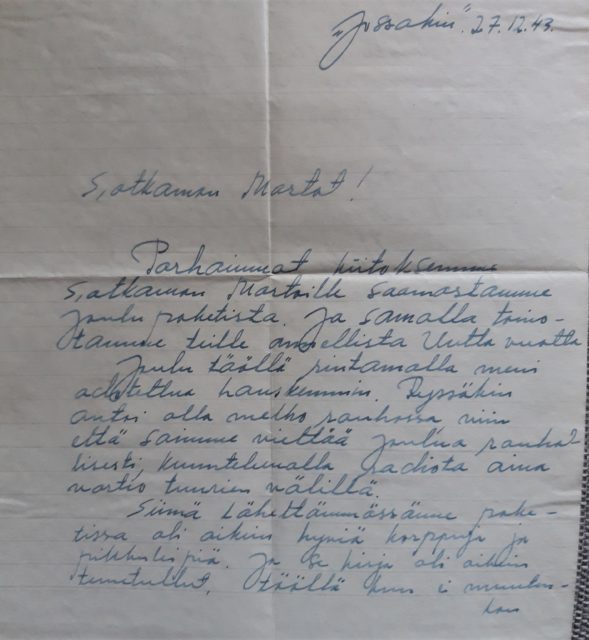 "Jossakin". 27.12.43.
Sotkamon Martat!
Parhaimmat kiitoksemme
Sotkamon Martoille saamastamme
joulu paketista. Ja samalla toivo-
tamme teille onnellista Uutta vuotta
Joulu täällä rintamalla meni
odotettua hauskemmin. Ryssäkin
antoi olla melko rauhassa niin
että saimme viettää joulua rauhal
lisesti, kuuntelemalla radiota aina
vartio tuurien välillä.
Siinä Lähettämässänne pake-
tissa oli oikein hyviä korppuja ja
pikkuleipiä. Ja se kirja oli oikein
tervetullut, täällä kun ei muuten-
kaan